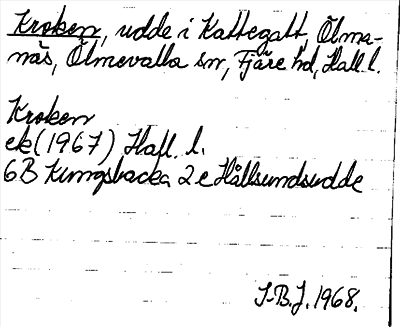 Kroken, udde i Kattegatt, Ölma-
näs, Ölmevalla sn, Fjäre hd, Hall. l.
Kroken
ek (1967) Hall. l.
6B Kungsbacka 2 e Hållsundsudde
I-B.J. 1968.